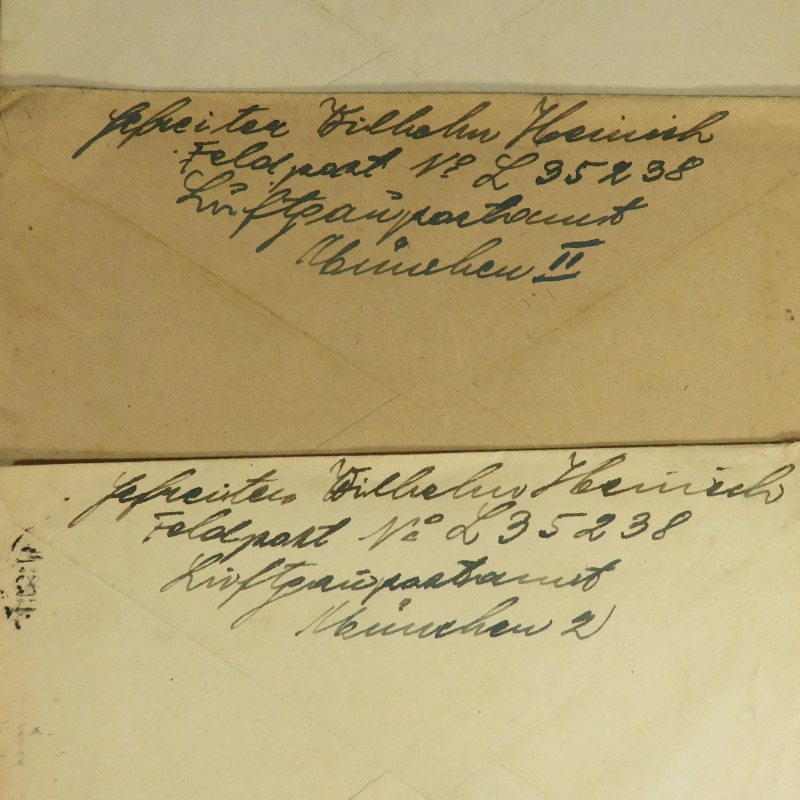 Gefreiter Wilhelm Heinisch
Feldpost No L 35238
Luftgaupostamt
München II
Gefreiter Wilhelm Heinisch
Feldpost No L 35238
Luftgaupostamt
München 2